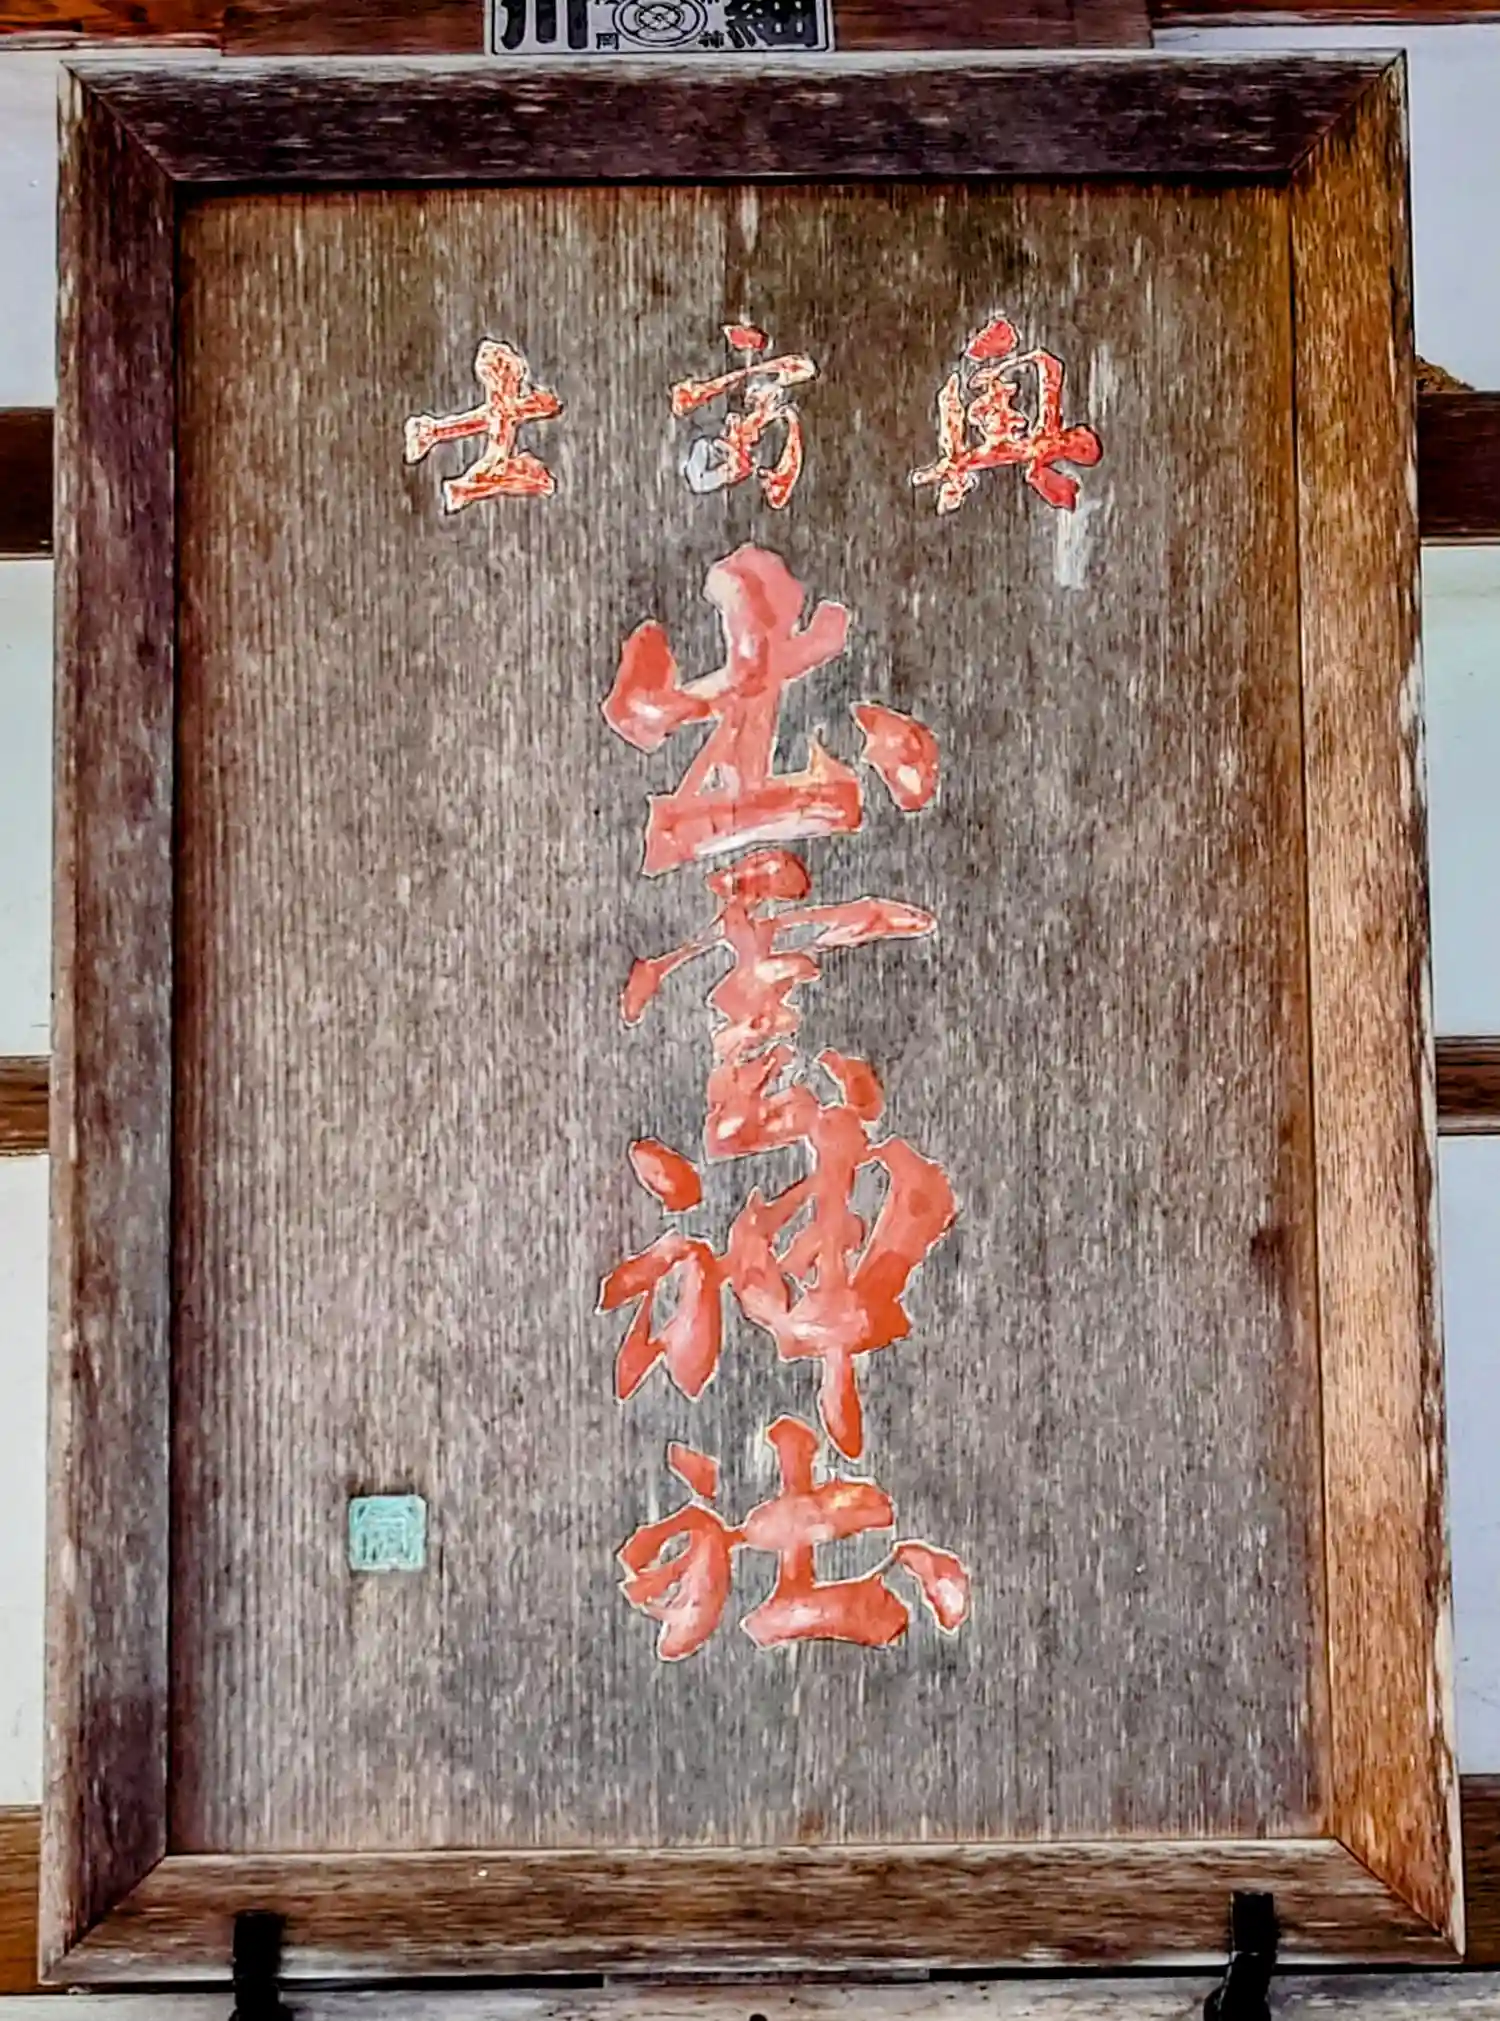 細川
奥富士
出雲神社